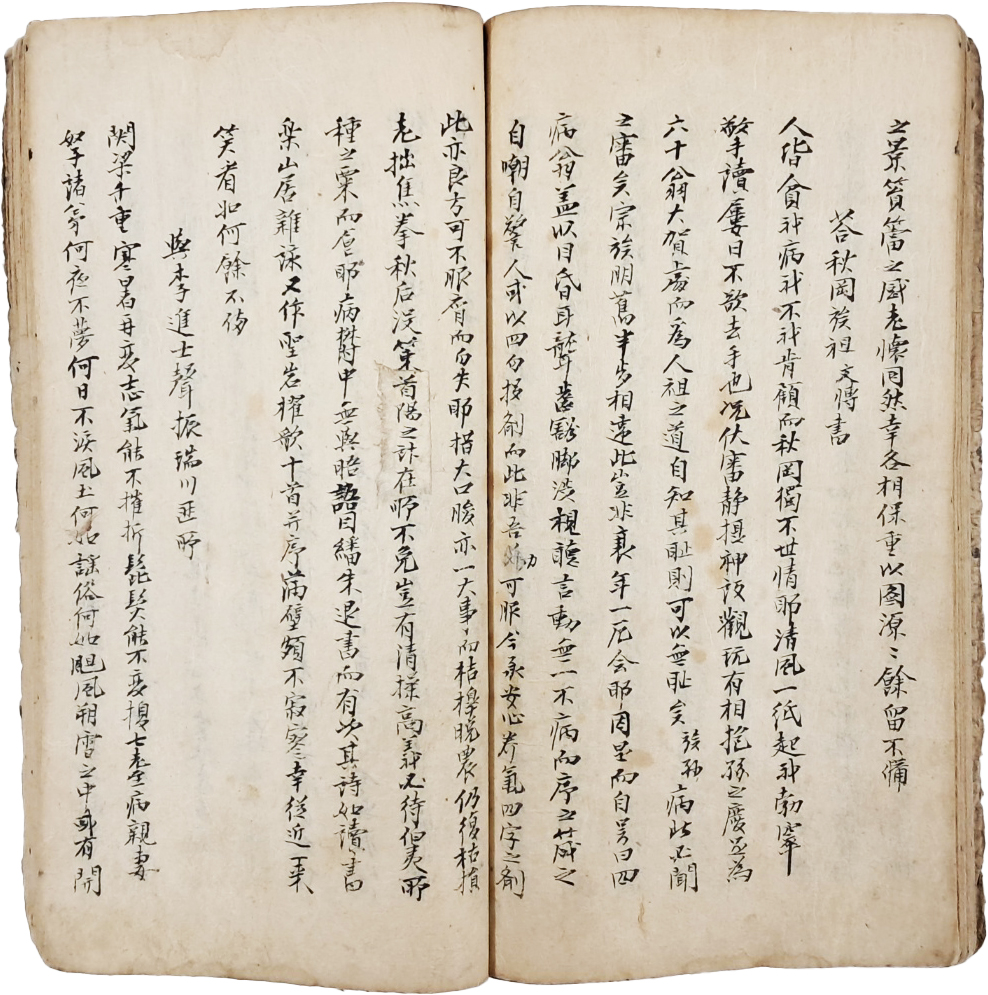 之景簣簹之感老懷同然幸各相保重以圖源〻餘留不備
答秋岡族祖 文博 書
人皆貧我病我不我肯顧而秋岡獨不世情耶清風一紙起我勃窣
擎讀屢日不欲去手也況伏審靜攝神設觀玩有相抱孫之慶并爲
六十翁大賀處而爲人祖之道自知其耻則可以無耻矣 族孫 病狀必聞
之審矣宗族朋舊半步相違此豈非衰年一厄会耶因是而自号曰四
病翁盖以目昏耳聾齒豁脚澁視聽言動無一不病而序之箴之
自嘲自警人或以四勿投劑而此非吾 可服今承安心养氣四字之劑
此亦良方可不服膺而勿失耶措大口腹亦一大事而桔槹晩農仍復枯損
老拙焦拳秋后没策首陽之計在所不免豈有清操高義必待伯夷所
種之粟而食耶病欝中無與晤語目繙朱退書而有 其詩如讀書
樂山居雜詠又作聖岩櫂歌十首并序滿壁頗不寂寥幸從近一來
笑者如何餘不備
與李進士聲振瑞川匪所
関梁千重寒暑再变志氣能不摧折髭髮能不变換七耋病親妻
孥子諸 何夜不夢何日不淚風土何如謠俗何如胆風朔雪之中或有開